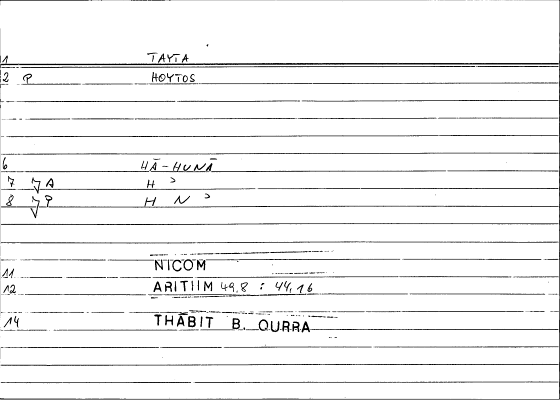 1 TAYTA
2 P HOYTOS
6 HĀ-HUNĀ
7 A H ʾ
8 P H N ʾ
11 NICOM
12 ARITIIM 49,8 : 44,16
14 THĀBIT B. QURRA